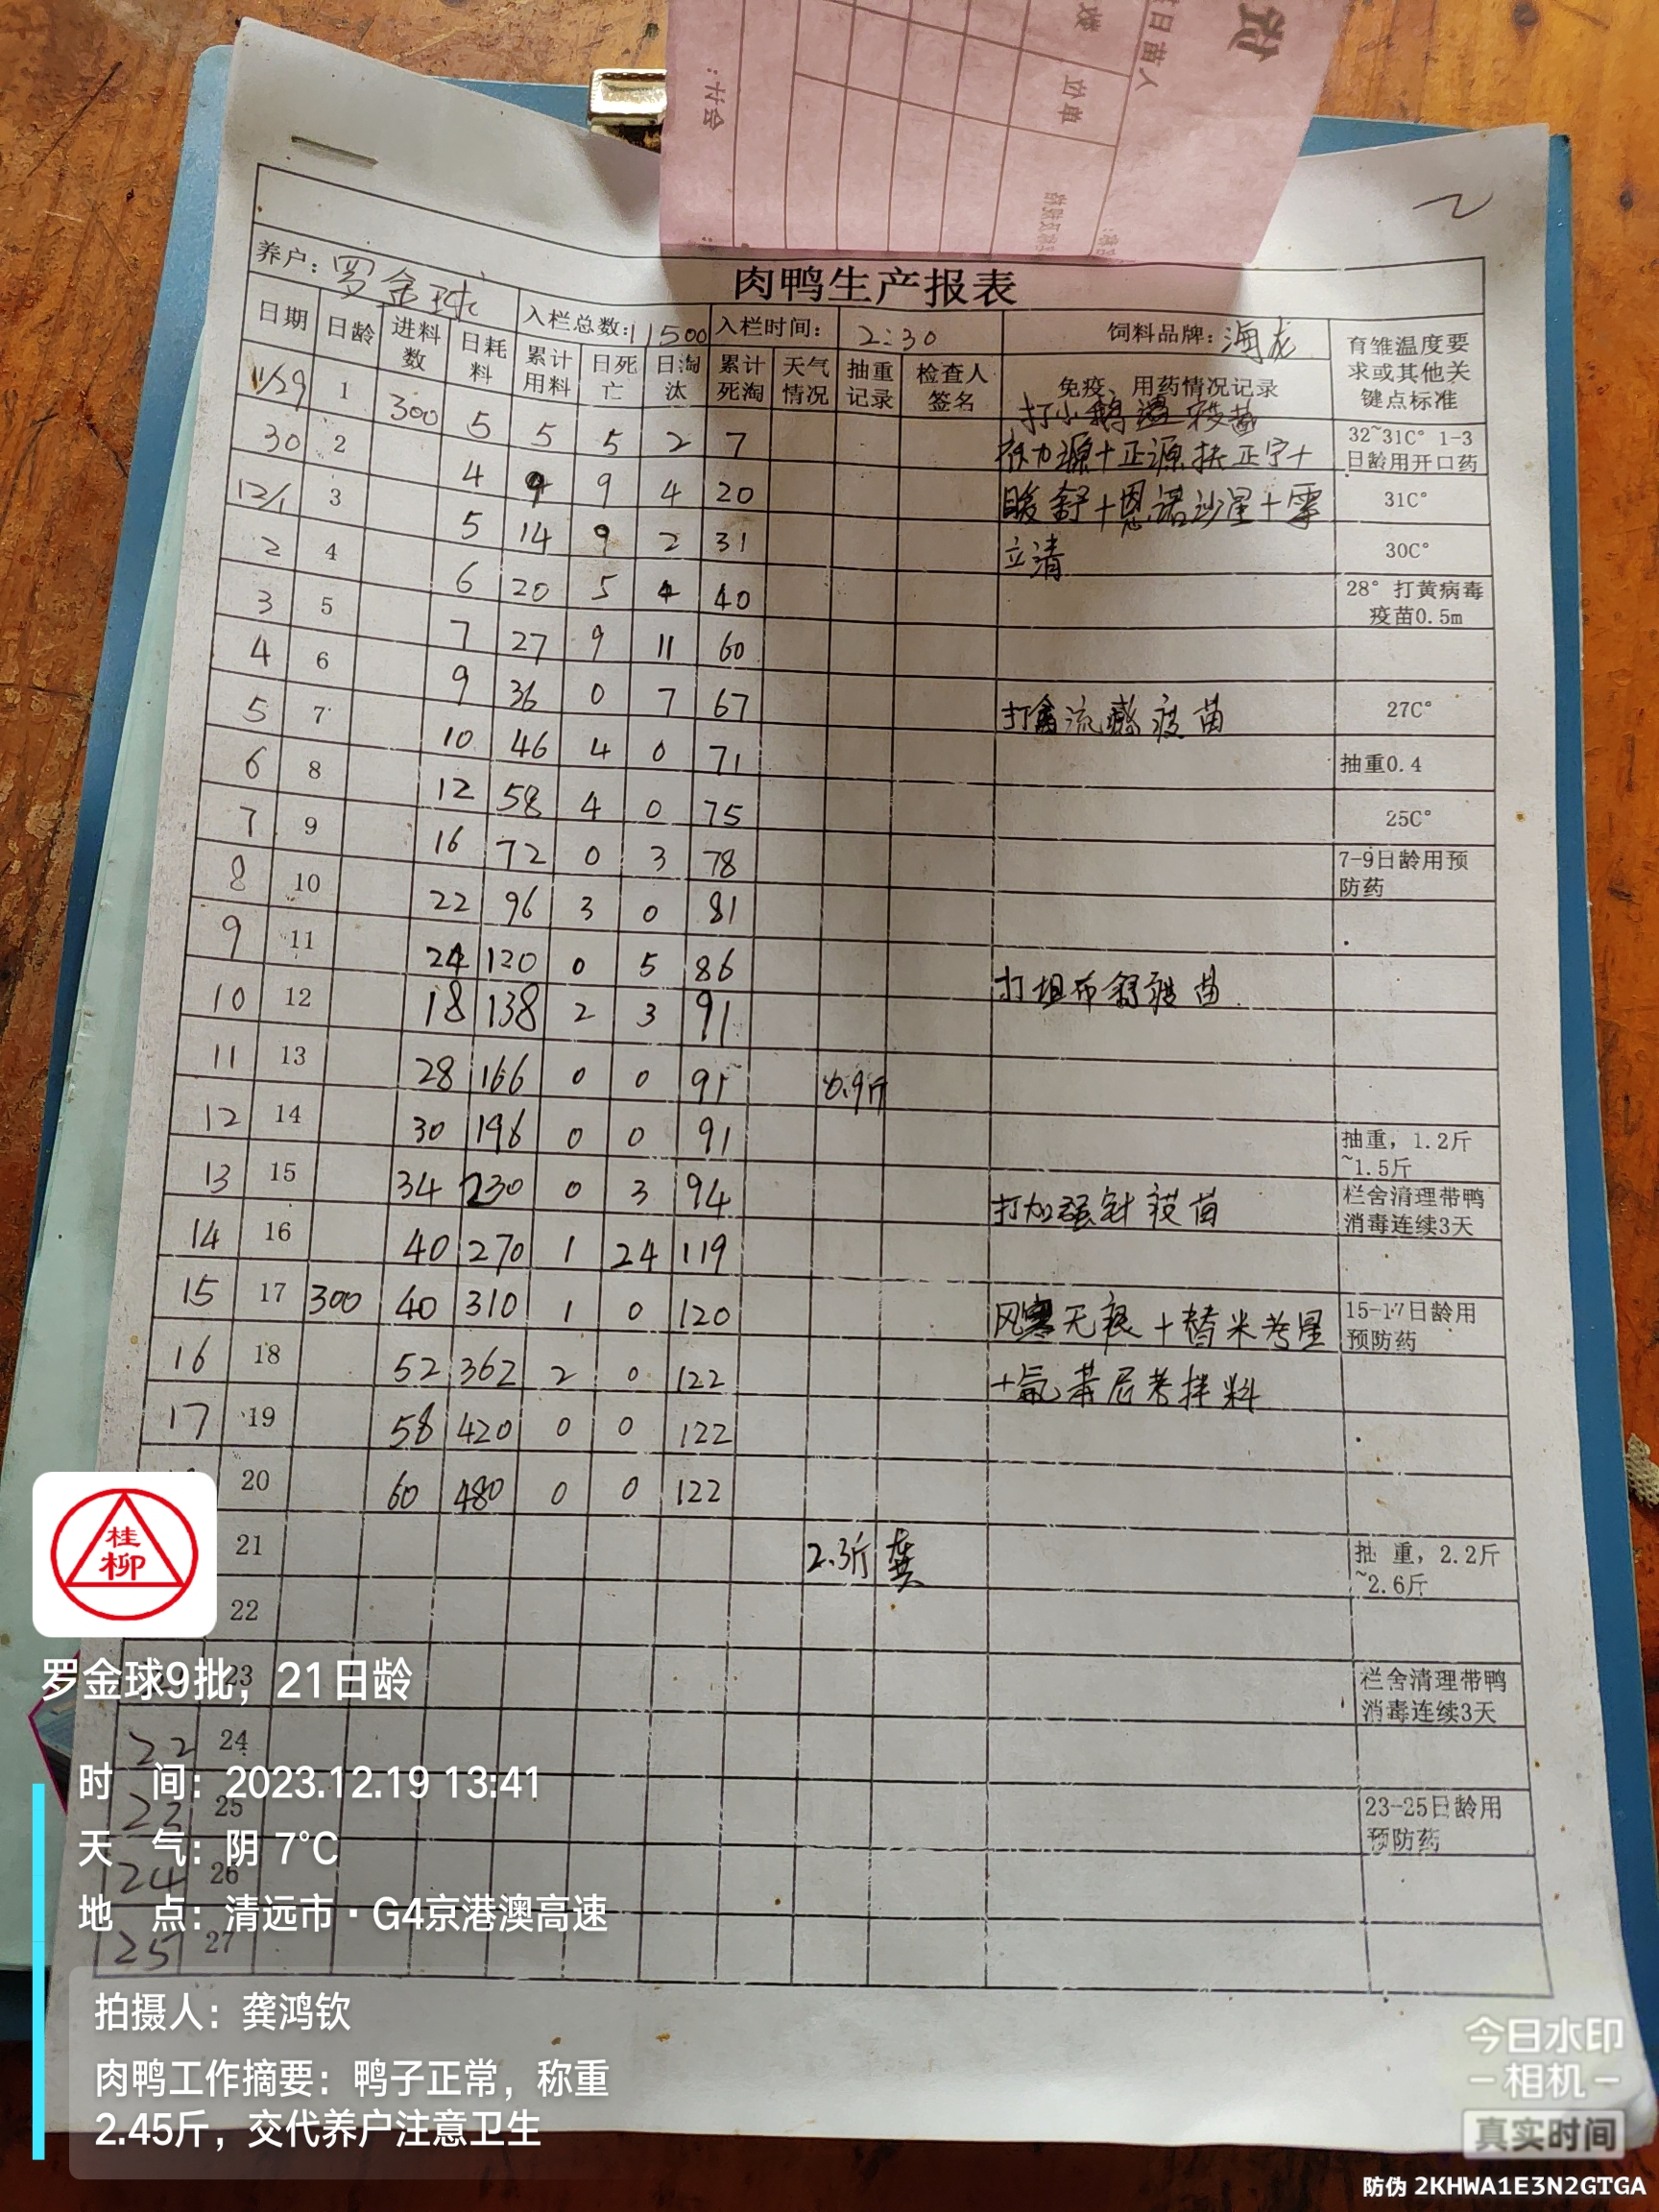 肉鸭生产报表
养户：罗金球 入栏总数：11500 入栏时间：2:30 饲料品牌：海龙
日期 日龄 进料数 日耗料 累计用料 日死亡 日淘汰 累计死淘 天气情况 抽重记录 检查人签名 免疫、用药情况记录 育雏温度要求或其他关键点标准
11/29 1 300 5 5 5 2 7 打小鹅瘟疫苗 32~31C° 1-3日龄用开口药
30 2 4 9 9 4 20 源+正源扶正宁+ 31C°
12/1 3 5 14 9 2 31 暖舒+恩诺沙星+霉 30C°
2 4 6 20 5 4 40 立清 28° 打黄病毒疫苗0.5m
3 5 7 27 9 11 60
4 6 9 36 0 7 67 打禽流感疫苗 27C°
5 7 10 46 4 0 71 抽重0.4
6 8 12 58 4 0 75 25C°
7 9 16 72 0 3 78 7-9日龄用预防药
8 10 22 96 3 0 81
9 11 24 120 0 5 86 打坦布舒疫苗
10 12 18 138 2 3 91
11 13 28 166 0 0 91 0.9斤
12 14 30 196 0 0 91 抽重，1.2斤~1.5斤
13 15 34 230 0 3 94 打加强针疫苗 栏舍清理带鸭消毒连续3天
14 16 40 270 1 24 119
15 17 300 40 310 1 0 120 风寒无痕+替米考星 15-17日龄用预防药
16 18 52 362 2 0 122 +氟苯尼考拌料
17 19 58 420 0 0 122
20 60 480 0 0 122
21 2.3斤 龚 抽 重，2.2斤~2.6斤
22
23 栏舍清理带鸭消毒连续3天
22 24
23 25 23-25日龄用预防药
24 26
25 27
桂柳
罗金球9批，21日龄
时 间：2023.12.19 13:41
天 气：阴 7℃
地 点：清远市·G4京港澳高速
拍摄人：龚鸿钦
肉鸭工作摘要：鸭子正常，称重
2.45斤，交代养户注意卫生
今日水印
相机
真实时间
防伪 2KHWA1E3N2GTGA